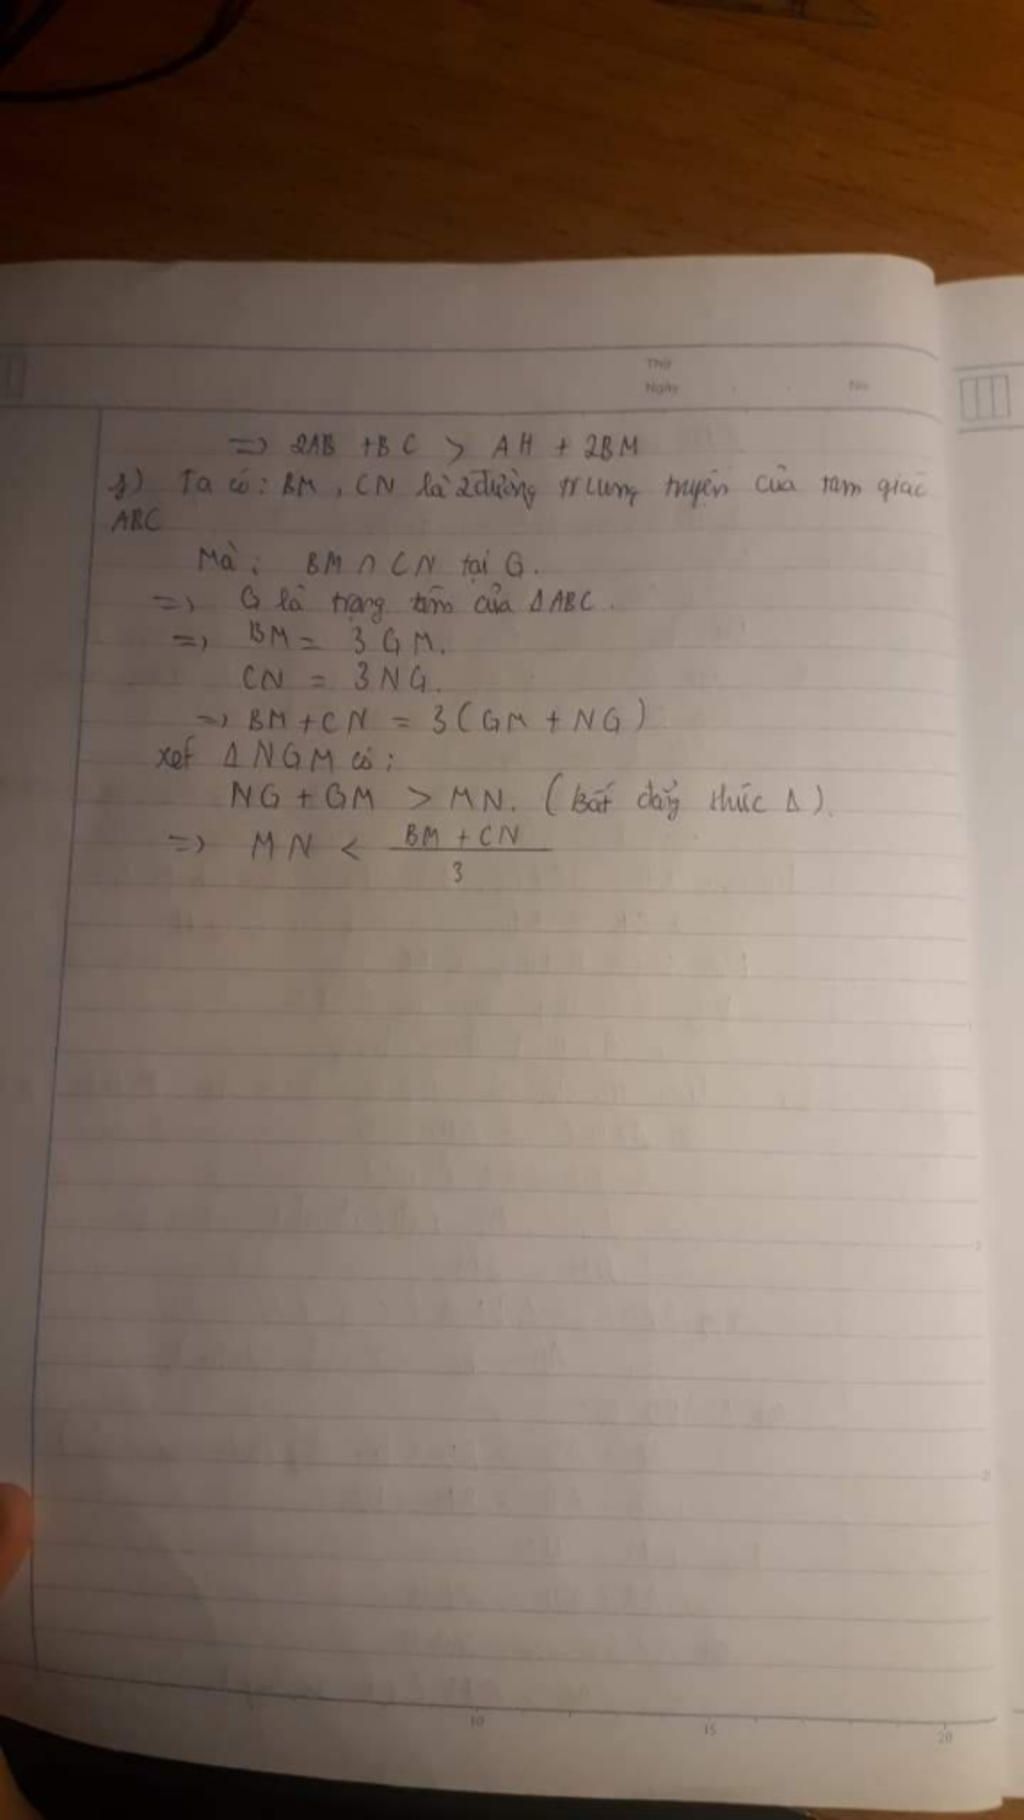 Thứ
Ngày . . No
=> 2AB + BC > AH + 2BM
f) Ta có: BM, CN là 2 đường trung tuyến của tam giác
ABC
Mà: BM ∩ CN tại G.
=> G là trọng tâm của ΔABC.
=> BM = 3GM.
CN = 3NG.
=> BM + CN = 3(GM + NG)
xét ΔNGM có:
NG + GM > MN. (Bất đẳng thức Δ).
=> MN < BM + CN
3
10 15 20